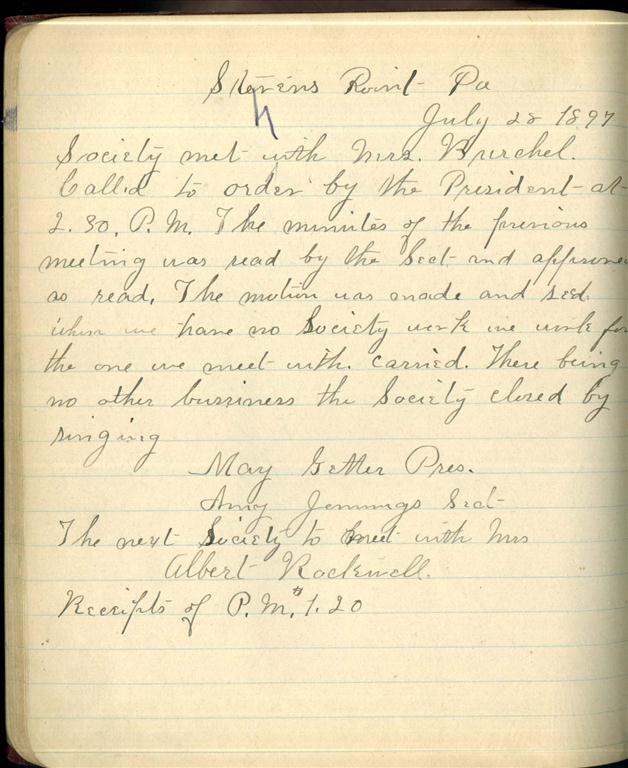 Stevens Point Pa
July 28 1897
Society met with Mrs. Burchel.
Called to order by the President at
2.30. P.M. The minutes of the previous
meeting was read by the Sect and approved
as read. The motion was made and Sed.
when we have no Society work we work for
the one we meet with. Carried. There being
no other bussiness the Society closed by
singing
May Getter Pres.
Amy Jennings Sect
The next Society to meet with Mrs
Albert Rockwell.
Receipts of P.M. $1.20